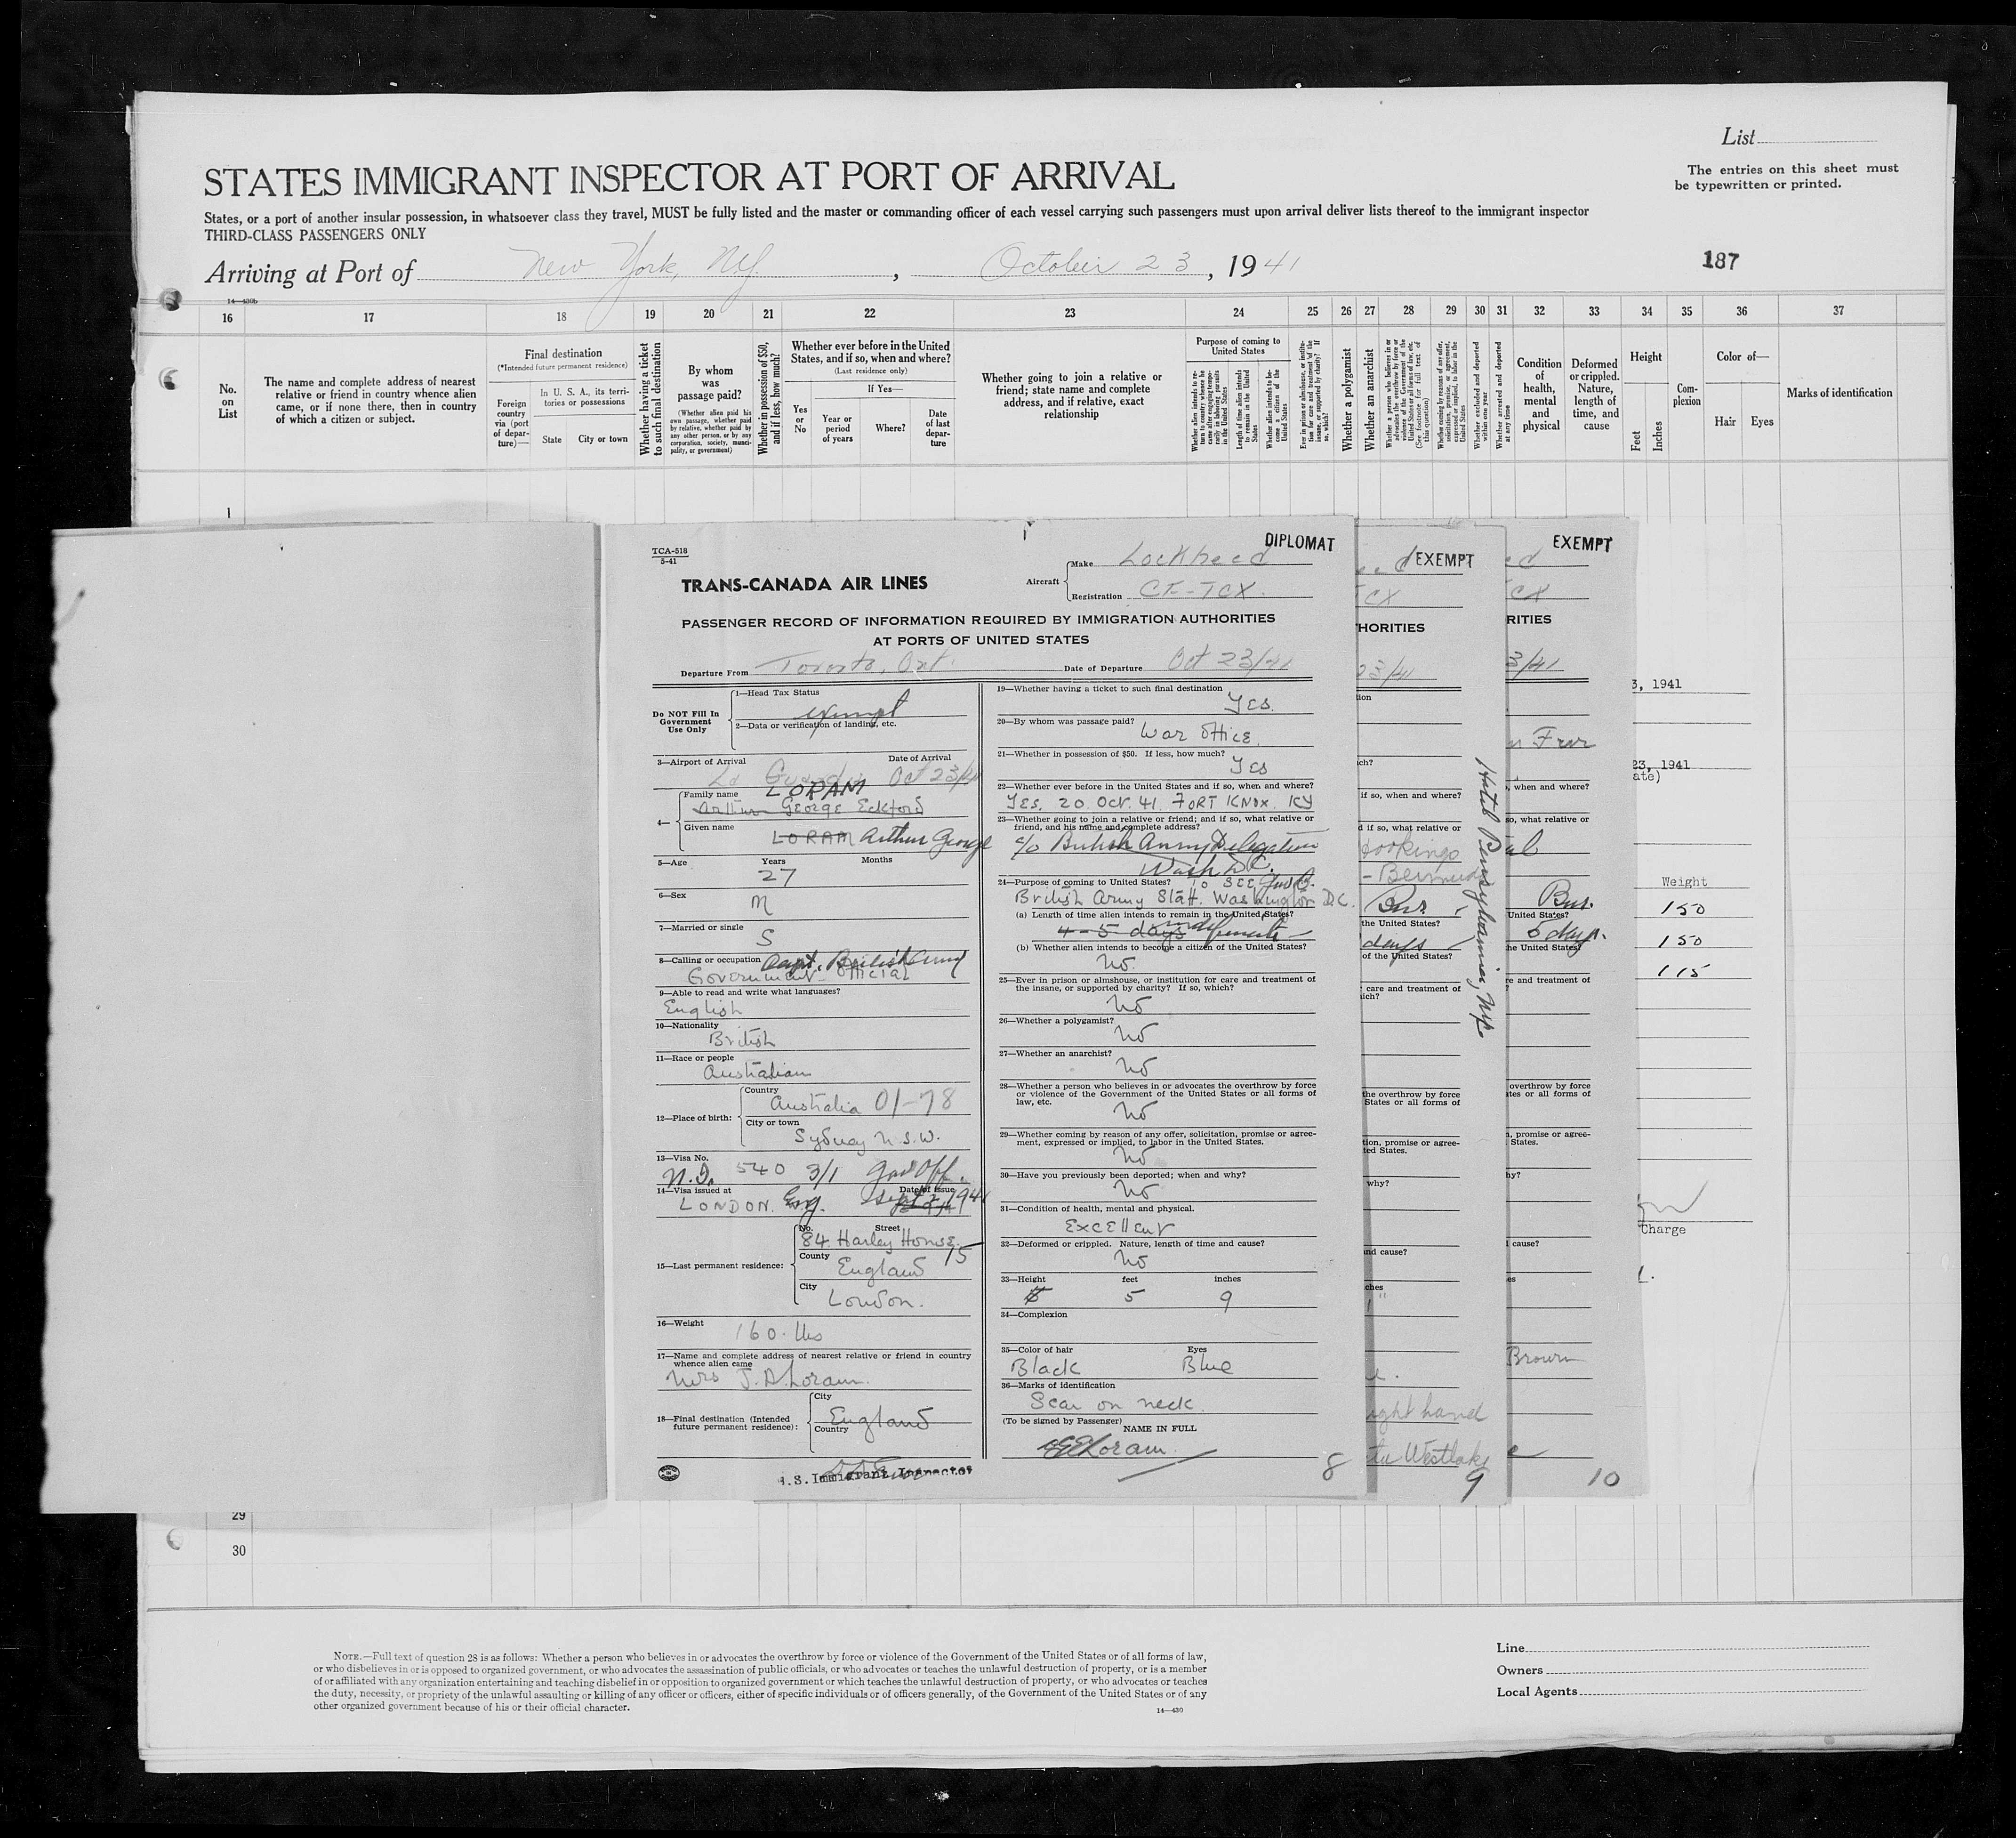 List
The entries on this sheet must
be typewritten or printed.
STATES IMMIGRANT INSPECTOR AT PORT OF ARRIVAL
States, or a port of another insular possession, in whatsoever class they travel, MUST be fully listed and the master or commanding officer of each vessel carrying such passengers must upon arrival deliver lists thereof to the immigrant inspector
THIRD-CLASS PASSENGERS ONLY
Arriving at Port of New York, NY. , October 23, 1941
187
14—430b
16 17 18 19 20 21 22 23 24 25 26 27 28 29 30 31 32 33 34 35 36 37
No.
on
List
The name and complete address of nearest
relative or friend in country whence alien
came, or if none there, then in country
of which a citizen or subject.
Final destination
(*Intended future permanent residence)
Foreign
country
via (port
of depar-
ture)—
In U. S. A., its terri-
tories or possessions
State City or town
Whether having a ticket
to such final destination
By whom
was
passage paid?
(Whether alien paid his
own passage, whether paid
by relative, whether paid by
any other person, or by any
corporation, society, munici-
pality, or government)
Whether in possession of $50,
and if less, how much?
Whether ever before in the United
States, and if so, when and where?
(Last residence only)
If Yes—
Yes
or
No
Year or
period
of years
Where?
Date
of last
depar-
ture
Whether going to join a relative or
friend; state name and complete
address, and if relative, exact
relationship
Purpose of coming to
United States
Whether alien intends to re-
turn to country whence he
came after engaging tempo-
rarily in laboring pursuits
in the United States
Length of time alien intends
to remain in the United
States
Whether alien intends to be-
come a citizen of the
United States
Ever in prison or almshouse, or institu-
tion for care and treatment of the
insane, or supported by charity? If
so, which?
Whether a polygamist
Whether an anarchist
Whether a person who believes in or
advocates the overthrow by force or
violence of the Government of the
United States or all forms of law, etc.
(See footnote for full text of
this question)
Whether coming by reasons of any offer,
solicitation, promise, or agreement,
expressed or implied, to labor in the
United States
Whether excluded and deported
within one year
Whether arrested and deported
at any time
Condition
of
health,
mental
and
physical
Deformed
or crippled.
Nature,
length of
time, and
cause
Height
Feet
Inches
Com-
plexion
Color of—
Hair Eyes
Marks of identification
1
TCA-518
5-41
DIPLOMAT
TRANS-CANADA AIR LINES
Aircraft
Make Lockheed
Registration CF-TCX.
PASSENGER RECORD OF INFORMATION REQUIRED BY IMMIGRATION AUTHORITIES
AT PORTS OF UNITED STATES
Departure From Toronto, Ont. Date of Departure Oct 23/41
Do NOT Fill In
Government
Use Only
1—Head Tax Status
exempt
2—Data or verification of landing, etc.
3—Airport of Arrival Date of Arrival
La Guardia Oct 23/41
4—
Family name LORAM
Arthur George Eckford
Given name
LORAM Arthur George
5—Age Years Months
27
6—Sex
M
7—Married or single
S
8—Calling or occupation Capt. British Army
Government Official
9—Able to read and write what languages?
English
10—Nationality
British
11—Race or people
Australian
12—Place of birth:
Country
Australia 01-78
City or town
Sydney N.S.W.
13—Visa No.
N.I. 540 3/1 Gov Off.
14—Visa issued at Date of issue
LONDON. Eng. Sept 2, 1941
15—Last permanent residence:
No. Street
84 Harley House.
County 15
England
City
London.
16—Weight
160. lbs
17—Name and complete address of nearest relative or friend in country
whence alien came
Mrs J. A. Loram.
18—Final destination (Intended
future permanent residence):
City
England
Country
.S. Immigrant Inspector
19—Whether having a ticket to such final destination
Yes.
20—By whom was passage paid?
War Office.
21—Whether in possession of $50. If less, how much?
Yes
22—Whether ever before in the United States and if so, when and where?
YES. 20. Oct. 41. FORT KNOX. KY
23—Whether going to join a relative or friend; and if so, what relative or
friend, and his name and complete address?
c/o British Army Delegation
Wash D.C.
24—Purpose of coming to United States? to SEE
British Army Staff. Washington D.C.
(a) Length of time alien intends to remain in the United States?
4-5 days indefinite
(b) Whether alien intends to become a citizen of the United States?
No.
25—Ever in prison or almshouse, or institution for care and treatment of
the insane, or supported by charity? If so, which?
No
26—Whether a polygamist?
No
27—Whether an anarchist?
No
28—Whether a person who believes in or advocates the overthrow by force
or violence of the Government of the United States or all forms of
law, etc.
No
29—Whether coming by reason of any offer, solicitation, promise or agree-
ment, expressed or implied, to labor in the United States.
No
30—Have you previously been deported; when and why?
No
31—Condition of health, mental and physical.
Excellent
32—Deformed or crippled. Nature, length of time and cause?
No
33—Height feet inches
5 9
34—Complexion
35—Color of hair Eyes
Black Blue
36—Marks of identification
Scar on neck.
(To be signed by Passenger)
NAME IN FULL
Loram.
8
EXEMPT
CX
HORITIES
23/41
tion
ich?
if so, when and where?
d if so, what relative or
Hookings
- Bermuda
Bus.
the United States?
days
of the United States?
care and treatment of
ich?
the overthrow by force
States or all forms of
tion, promise or agree-
ted States.
why?
and cause?
ches
ight hand
Westlake
9
Hotel Pennsylvania, NY.
EXEMPT
CX
RITIES
3/41
, when and where?
so, what relative or
Bus.
United States?
5 days.
he United States?
re and treatment of
overthrow by force
ates or all forms of
n, promise or agree-
States.
hy?
cause?
es
Brown
10
3, 1941
23, 1941
ate)
Weight
150
150
115
Charge
29
30
NOTE.—Full text of question 28 is as follows: Whether a person who believes in or advocates the overthrow by force or violence of the Government of the United States or of all forms of law,
or who disbelieves in or is opposed to organized government, or who advocates the assassination of public officials, or who advocates or teaches the unlawful destruction of property, or is a member
of or affiliated with any organization entertaining and teaching disbelief in or opposition to organized government or which teaches the unlawful destruction of property, or who advocates or teaches
the duty, necessity, or propriety of the unlawful assaulting or killing of any officer or officers, either of specific individuals or of officers generally, of the Government of the United States or of any
other organized government because of his or their official character.
14—430
Line
Owners
Local Agents